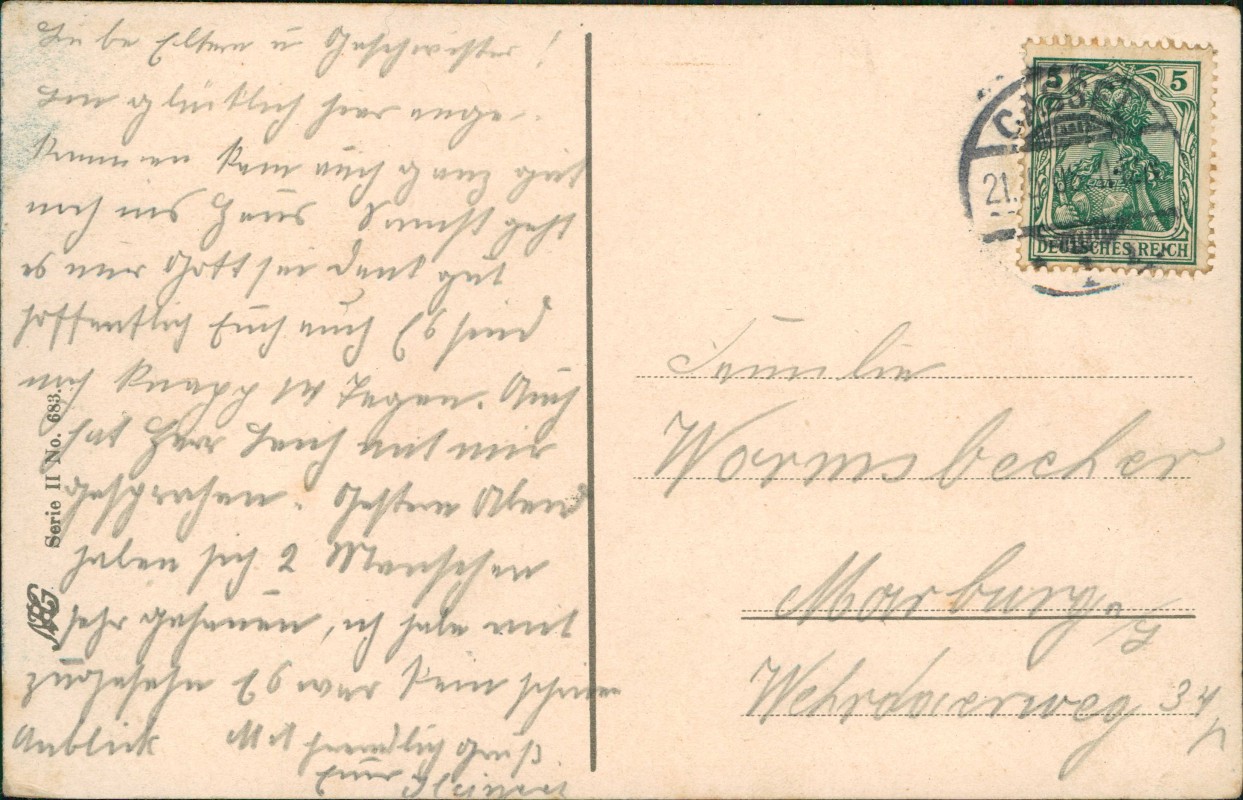 Liebe Eltern u Geschwister!
bin glücklich hier ange-
kommen kam auch ganz gut
nach ins Haus Sonst geht
es mir Gott sei dank gut
hoffentlich Euch auch Es sind
noch knapp 14 Tagen. Auch
hat Herr mit mir
gesprochen. Gestern Abend
haben sich 2 Menschen
sehr gehauen, ich habe mit
zugesehn Es war kein schöner
Anblick Mit freundlich Gruß
Euer
Serie II No. 683.
CASSEL
21.
5 5
DEUTSCHES REICH
Familie
Wormsbecher
Marburg a/L
Wehrdaerweg 34